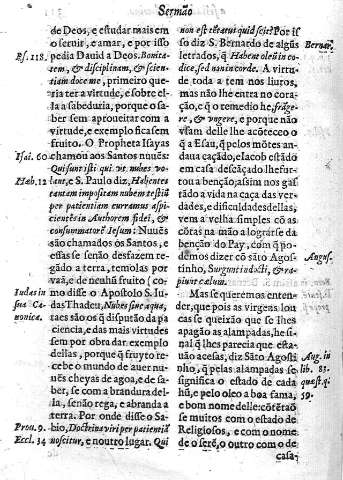 Sermão
de Deos, e estudar mais em
o seruir, e amar, e por isso
Ps. 118. pedia Dauid a Deos. Bonita-
tem, & disciplinam, & scien-
tiam doce me, primeiro que-
ria ter a virtude, e sobre el-
la a sabeduria, porque o sa-
ber sem aproueitar com a
virtude, e exemplo fica sem
fruito. O Propheta Isayas
Isai. 60. chamou aos Santos nuuẽs:
Qui sunt isti qui vt nubes vo-
Heb. 12 lant, e S. Paulo diz, Habentes
tantam impositam nubem testiũ
per patientiam curramus aspi-
cientes in Authorem fidei, &
consummatorẽ Iesum: Nuuẽs
são chamados os Santos, e
essas se senão desfazem re-
gãdo a terra, temolas por
vaã, e de nenhũ fruito (co-
Iudas in mo disse o Apostolo S. Iu-
sua Ca- das Thadeu, Nubes sine aqua,
nonica. taes são os q̃ disputão da pa
ciencia, e das mais virtudes
sem por obra dar exemplo
dellas, porque q̃ fruyto re-
cebe o mundo de auer nu-
uẽs cheyas de agoa, e de sa-
ber, se com a brandura del-
la, senão rega, e abranda a
terra. Por onde disse o Sa-
Prou. 9. bio, Doctrina viri per patientiã
Eccl. 34 noscitur, e noutro lugar. Qui
non est tẽtatus quid scit? Por is-
so diz S. Bernardo de algũs
Bernar.
letrados, q̃ Habent oleũ in co-
dice, sed non in corde. A virtu-
de toda a tem nos liuros,
mas não lhe entra no cora-
ção, e q̃ o remedio he, frãge-
re, & vngere, e porque não
vsam delle lhe acõteceo o
q̃ a Esau, q̃ pelos mõtes an-
daua caçãdo, e Iacob estãdo
em casa descãçado lhe fur-
tou a benção, assim nos gas-
tãdo a vida na caça das ver-
dades, e dificuldades dellas,
vem a velha simples cõ as
cõtas na mão a lograrse da
benção do Pay, com q̃ po-
demos dizer cõ sãto Agos-
Augus.
tinho, Surgunt indocti, & ra-
piunt cælum.
Mas se queremos enten-
der, que pois as virgens lou
cas se queixão que se lhes
apagão as alampadas, he si-
nal q̃ lhes parecia que esta-
uão acesas, diz Sãto Agosti
Aug. in
nho, q̃ pelas alampadas se
lib. 83.
significa o estado de cada
quæst. q.
hũ, e pelo oleo a boa fama,
59.
e bom nome delle: cõtẽtão
se muitos com o estado de
Religiosos, e com o nome
de o serẽ, o outro com o de
casa-